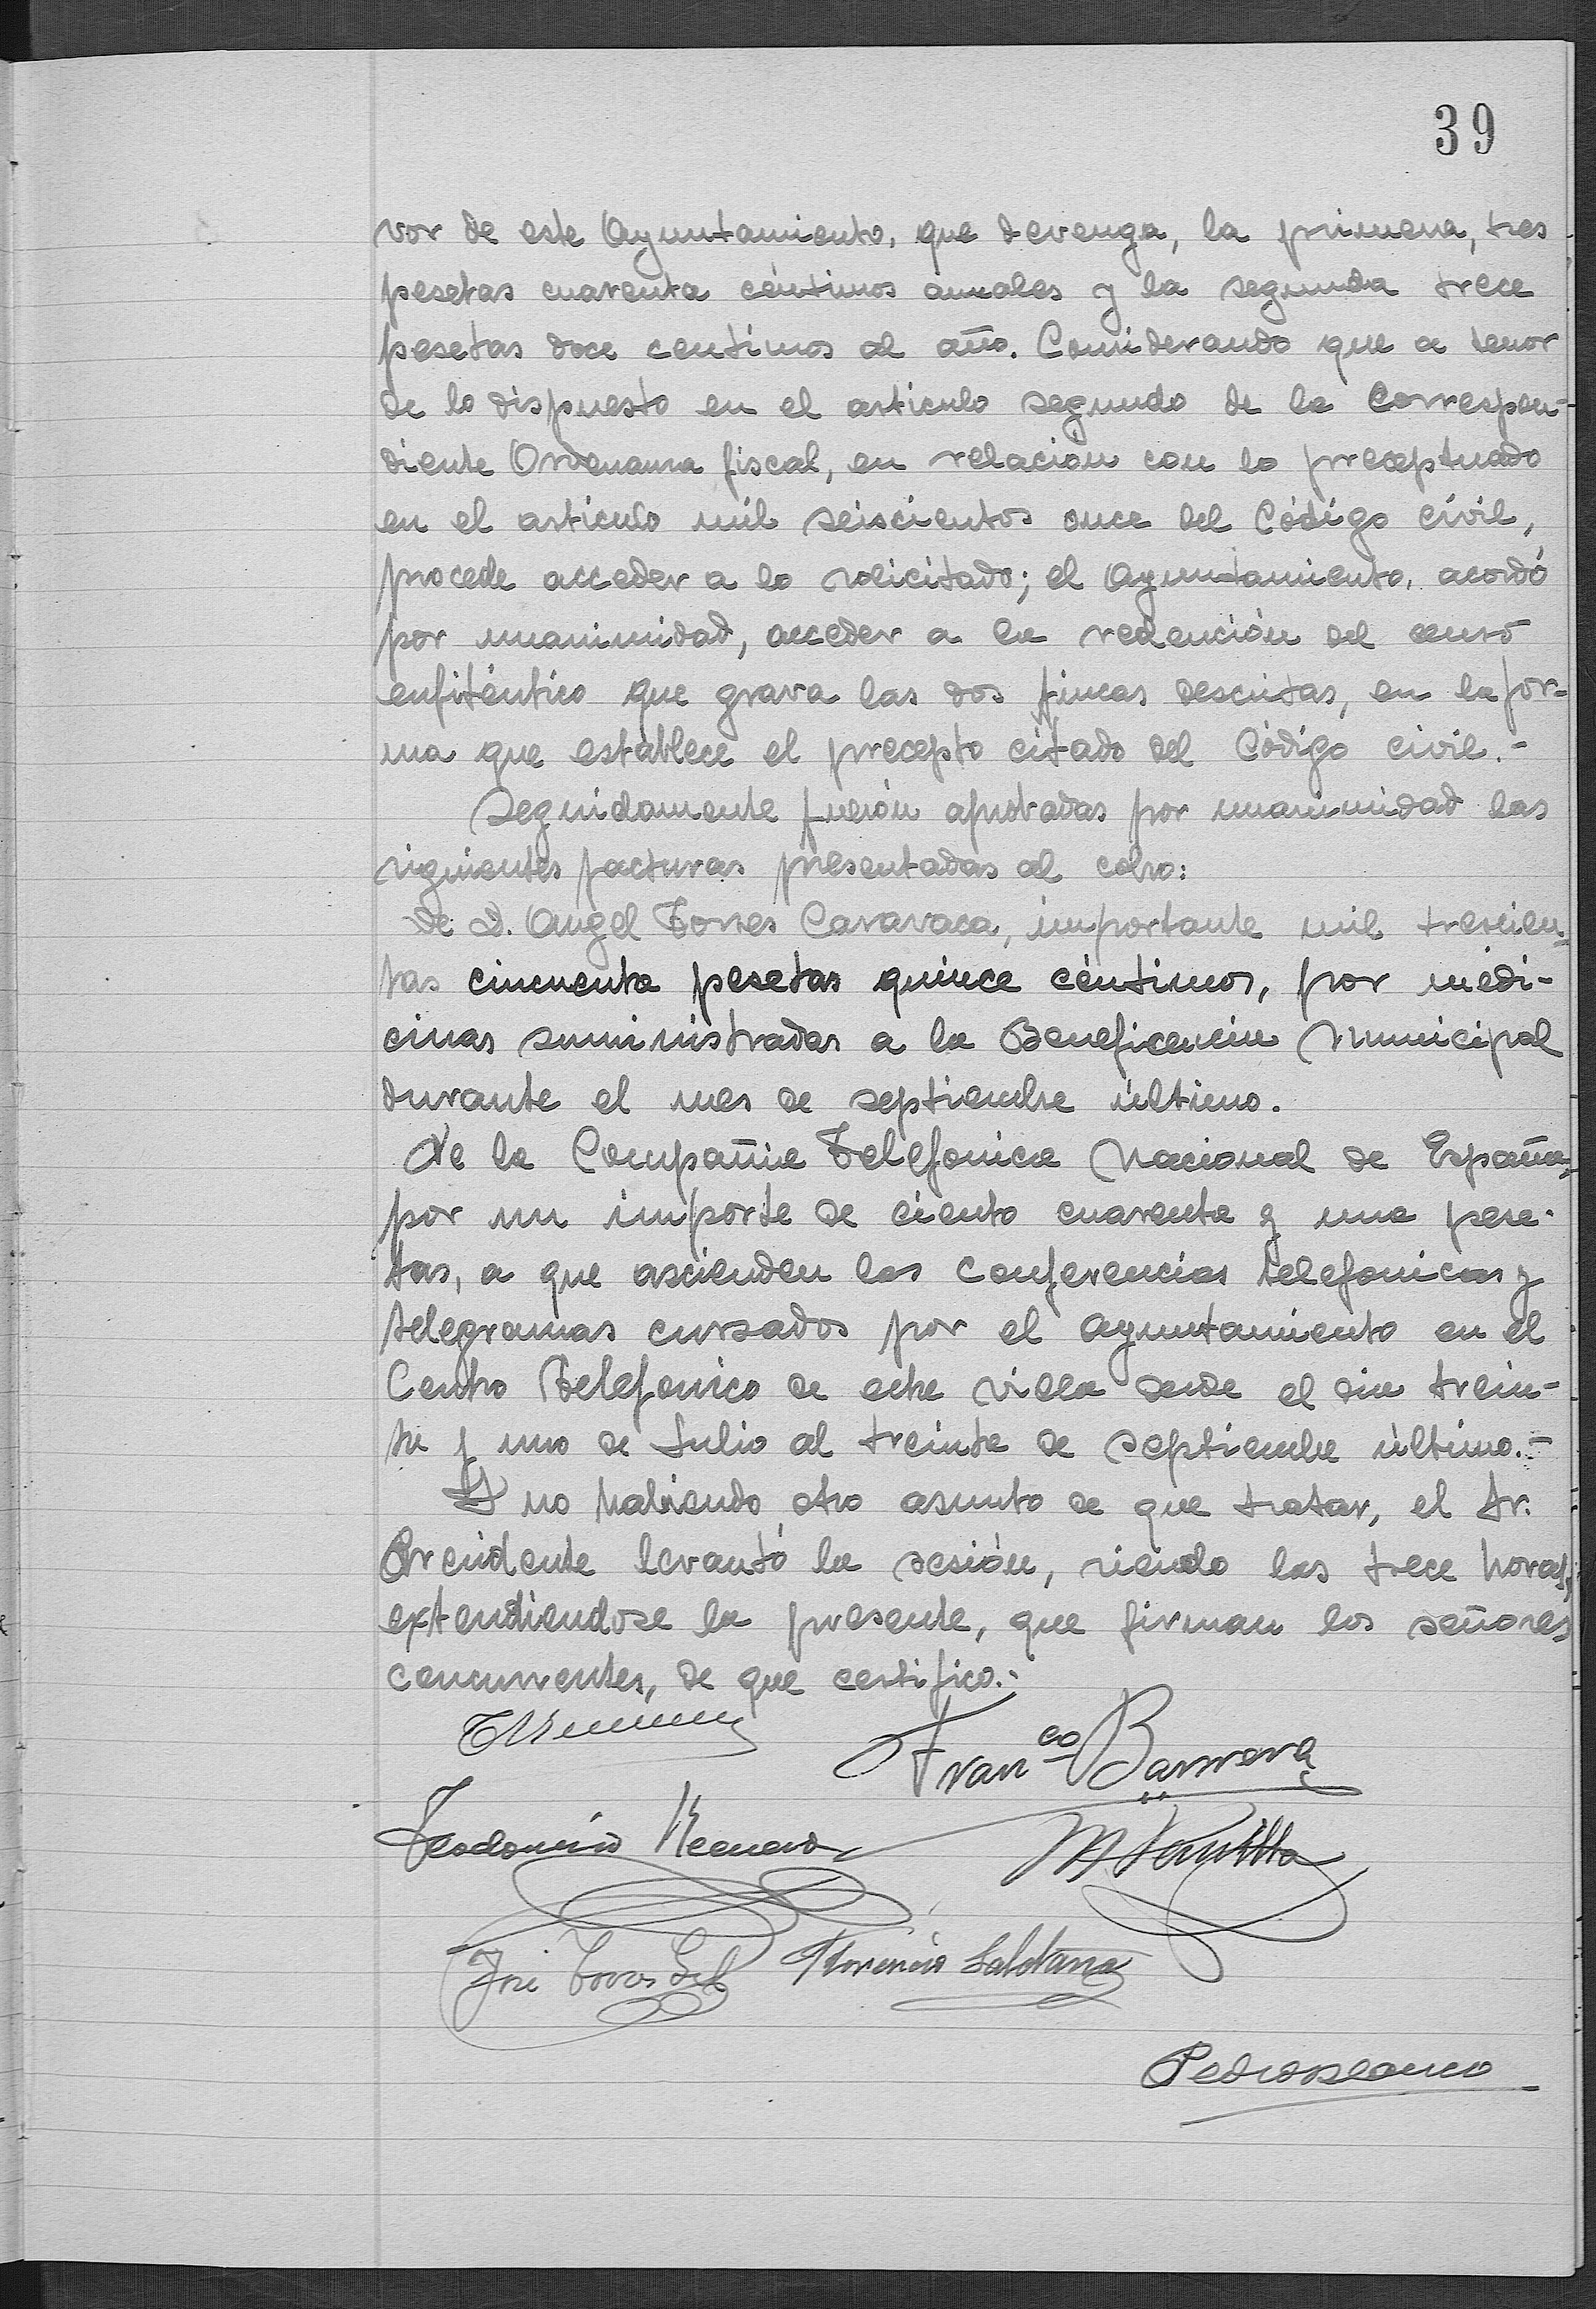 39
vor de este Ayuntamiento, que devenga, la primera, tres
pesetas cuarenta céntimos anuales y la segunda trece
pesetas doce centimos al año. Considerando que a tenor
de lo dispuesto en el articulo segundo de la correspon-
diente Ordenanza fiscal, en relación con lo preceptuado
en el articulo mil seiscientos once del Código civil,
procede acceder a lo solicitado; el Ayuntamiento, acordó
por unanimidad, acceder a la redención del censo
enfitéutico que grava las dos fincas descritas, en la for-
ma que establece el precepto citado del Código civil.-
Seguidamente fueron aprobadas por unanimidad las
siguientes facturas presentadas al cobro:
de D. Angel Torres Caravaca, importante mil trescien-
tas cincuenta pesetas quince céntimos, por medi-
cinas suministradas a la Beneficencia Municipal
durante el mes de septiembre último.
De la Compañia Telefonica Nacional de España,
por un importe de ciento cuarenta y una pese-
tas, a que ascienden las conferencias telefonicas y
telegramas cursados por el Ayuntamiento en el
Centro Telefonico de esta villa desde el dia trein-
ta y uno de Julio al treinta de septiembre último.-
Y no habiendo otro asunto de que tratar, el Sr.
Presidente levantó la sesión, siendo las trece horas,
extendiendose la presente, que firman los señores
concurrentes, de que certifico.-
Franco Barrera
José Torres Gil Florencio Saldaña
Pedro Blanco